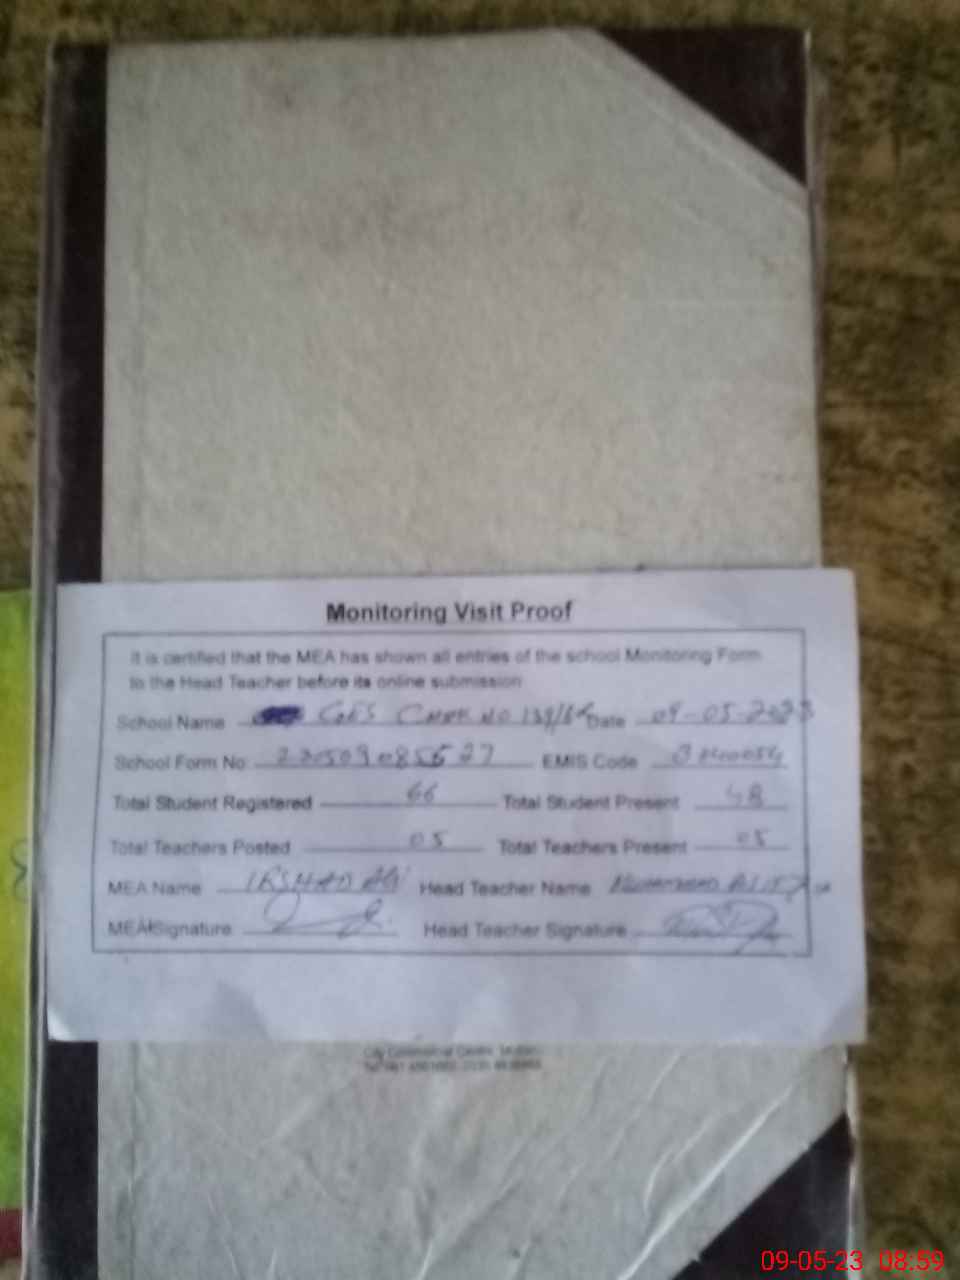 Monitoring Visit Proof
It is certified that the MEA has shown all entries of the school Monitoring Form
to the Head Teacher before its online submission
School Name GES Chak No 139/ Date 09-05-2023
School Form No 230509085627 EMIS Code
Total Student Registered 66 Total Student Present 48
Total Teachers Posted 05 Total Teachers Present 05
MEA Name IRSHAD Ali Head Teacher Name Muhammad
MEA Signature Head Teacher Signature
City Commercial Centre,
09-05-23 08:59